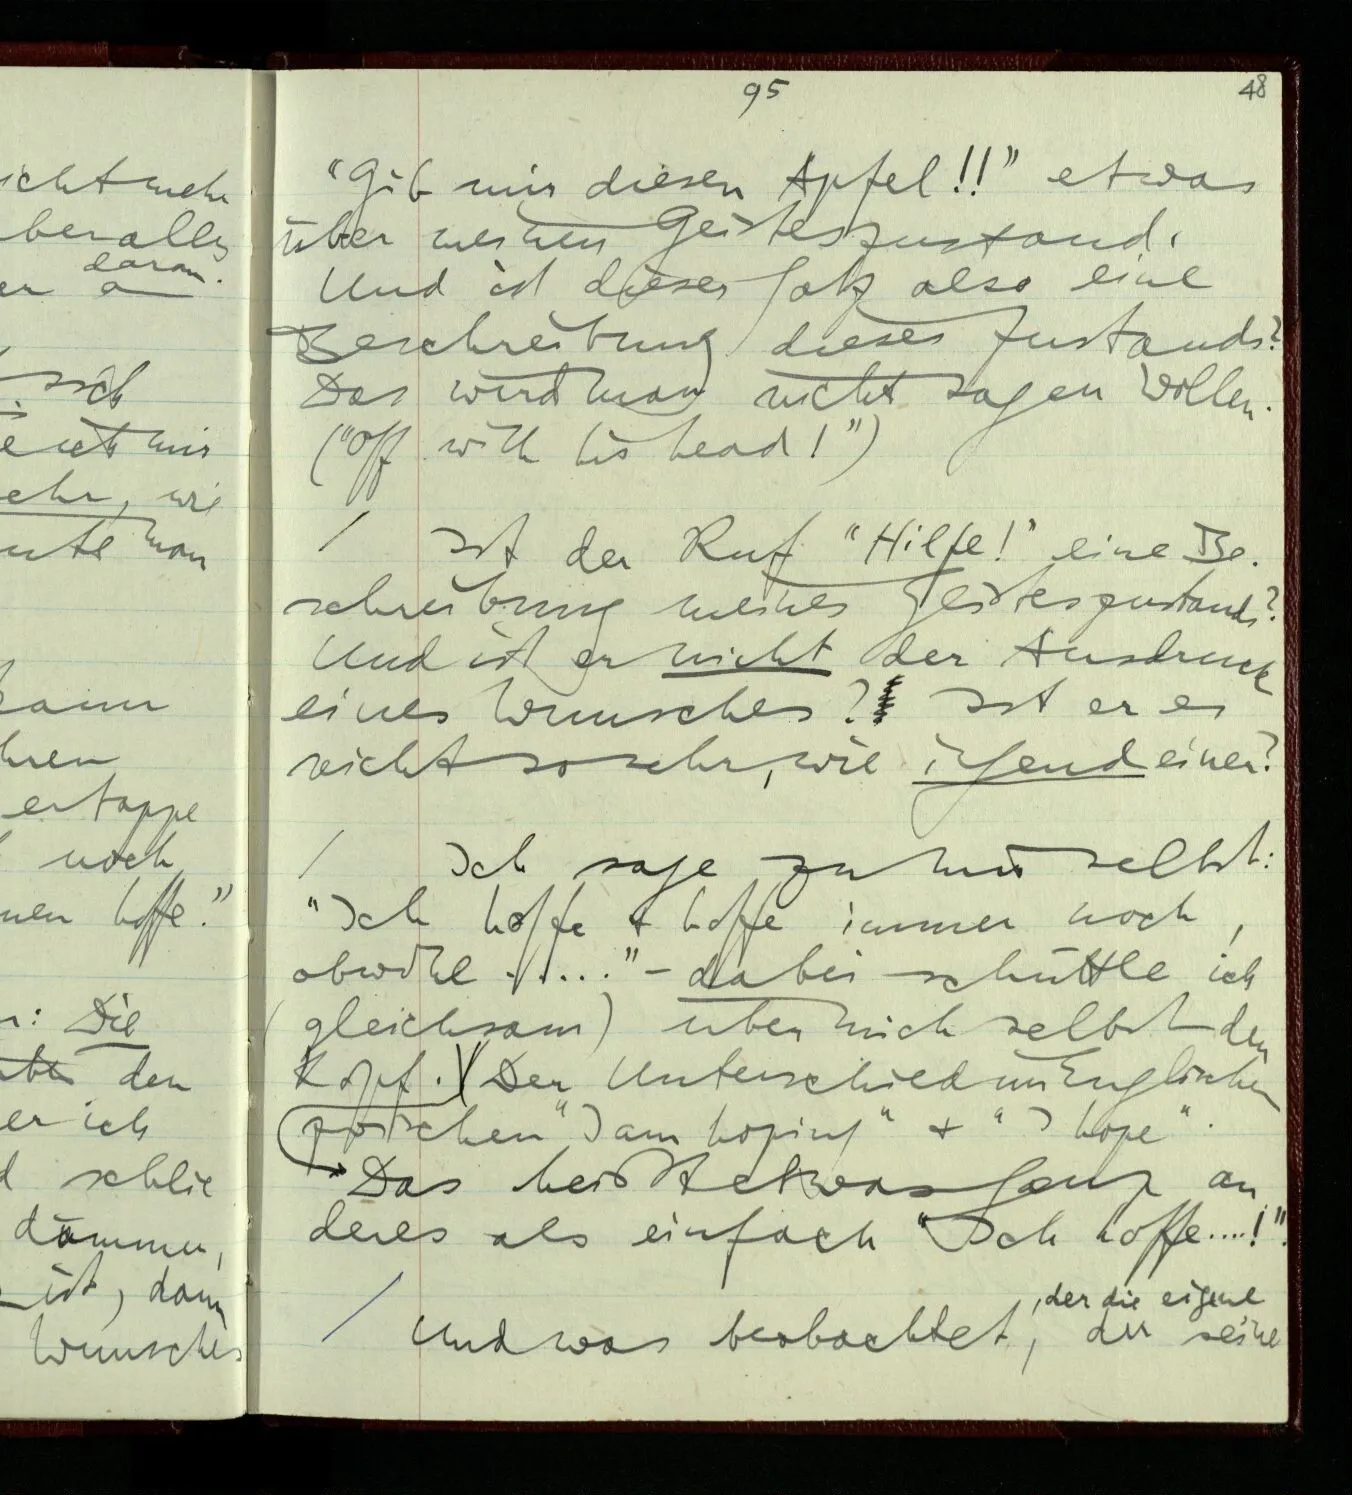 icht mehr
berall
daran.
er a
sich
mir
ehr, wie
man
ertappe
noch
nen hoffe."
: Die
den
er ich
d schlie
dämmer,
ist, dann
Wunsches
95
48
"Gib mir diesen Apfel!!" etwas
über meinen Geisteszustand.
Und ist dieser Satz also eine
Beschreibung dieses Zustands?
Das wird man nicht sagen wollen.
("Off with his head!")
/ Ist der Ruf "Hilfe!" eine Be-
schreibung meines Geisteszustands?
Und ist er nicht der Ausdruck
eines Wunsches? Ist er es
nicht so sehr, wie irgend einer?
/ Ich sage zu mir selbst:
"Ich hoffe & hoffe immer noch,
obwohl ....." – dabei schüttle ich
(gleichsam) über mich selbst den
Kopf.)(Der Unterschied im Englischen
zwischen "I am hoping" & "I hope".
Das heißt etwas ganz an
deres als einfach "Ich hoffe....!".
, der die eigene
/ Und was beobachtet, der seine